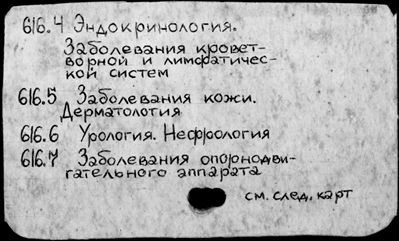 616.4 Эндокринология.
Заболевания кровет-
ворной и лимфатичес-
кой систем
616.5 Заболевания кожи.
Дерматология
616.6 Урология. Нефрология
616.7 Заболевания опорнодви-
гательного аппарата
см. след. карт